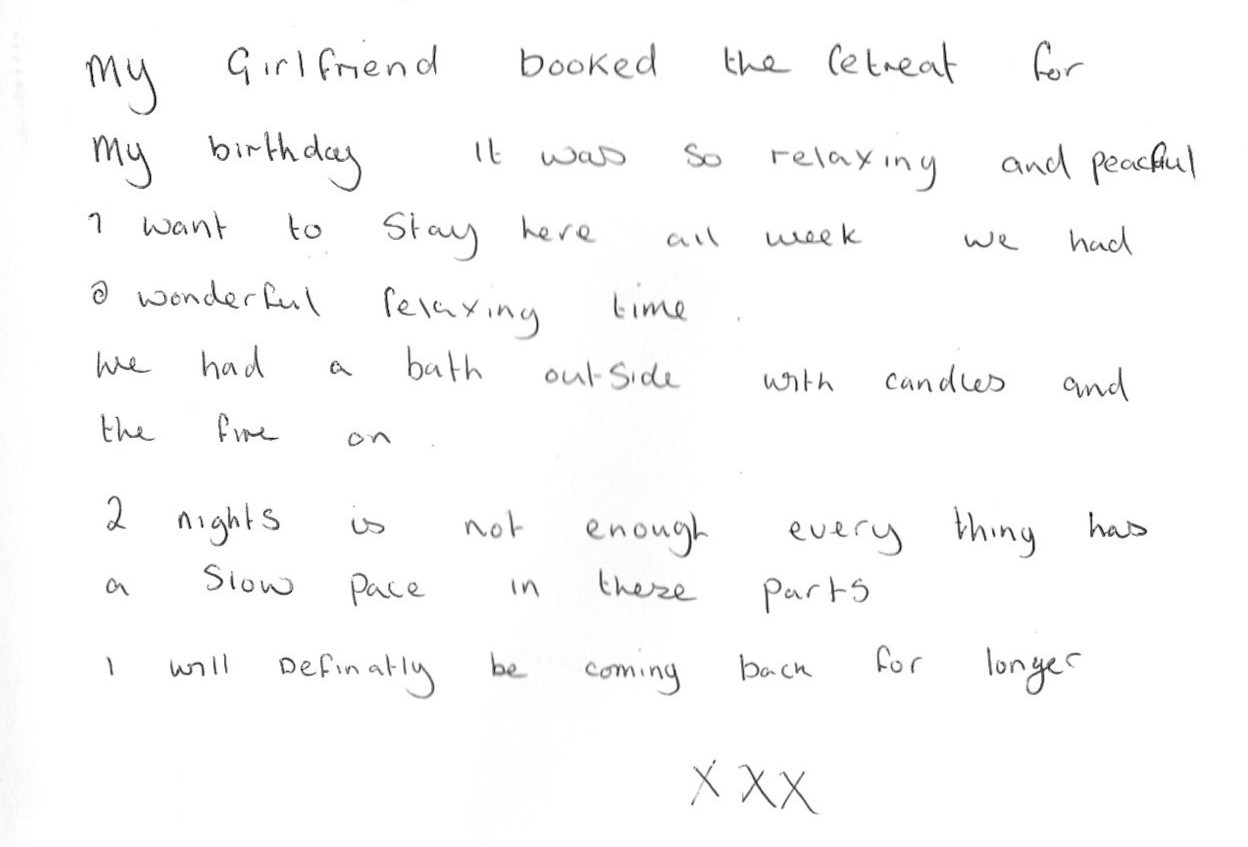 My Girlfriend booked the retreat for
My birthday It was so relaxing and peacful
I want to Stay here all week we had
a wonderful relaxing time .
We had a bath outside with candles and
the fire on .
2 nights is not enough every thing has
a Slow Pace in these parts
I will Definatly be coming back for longer
X X X